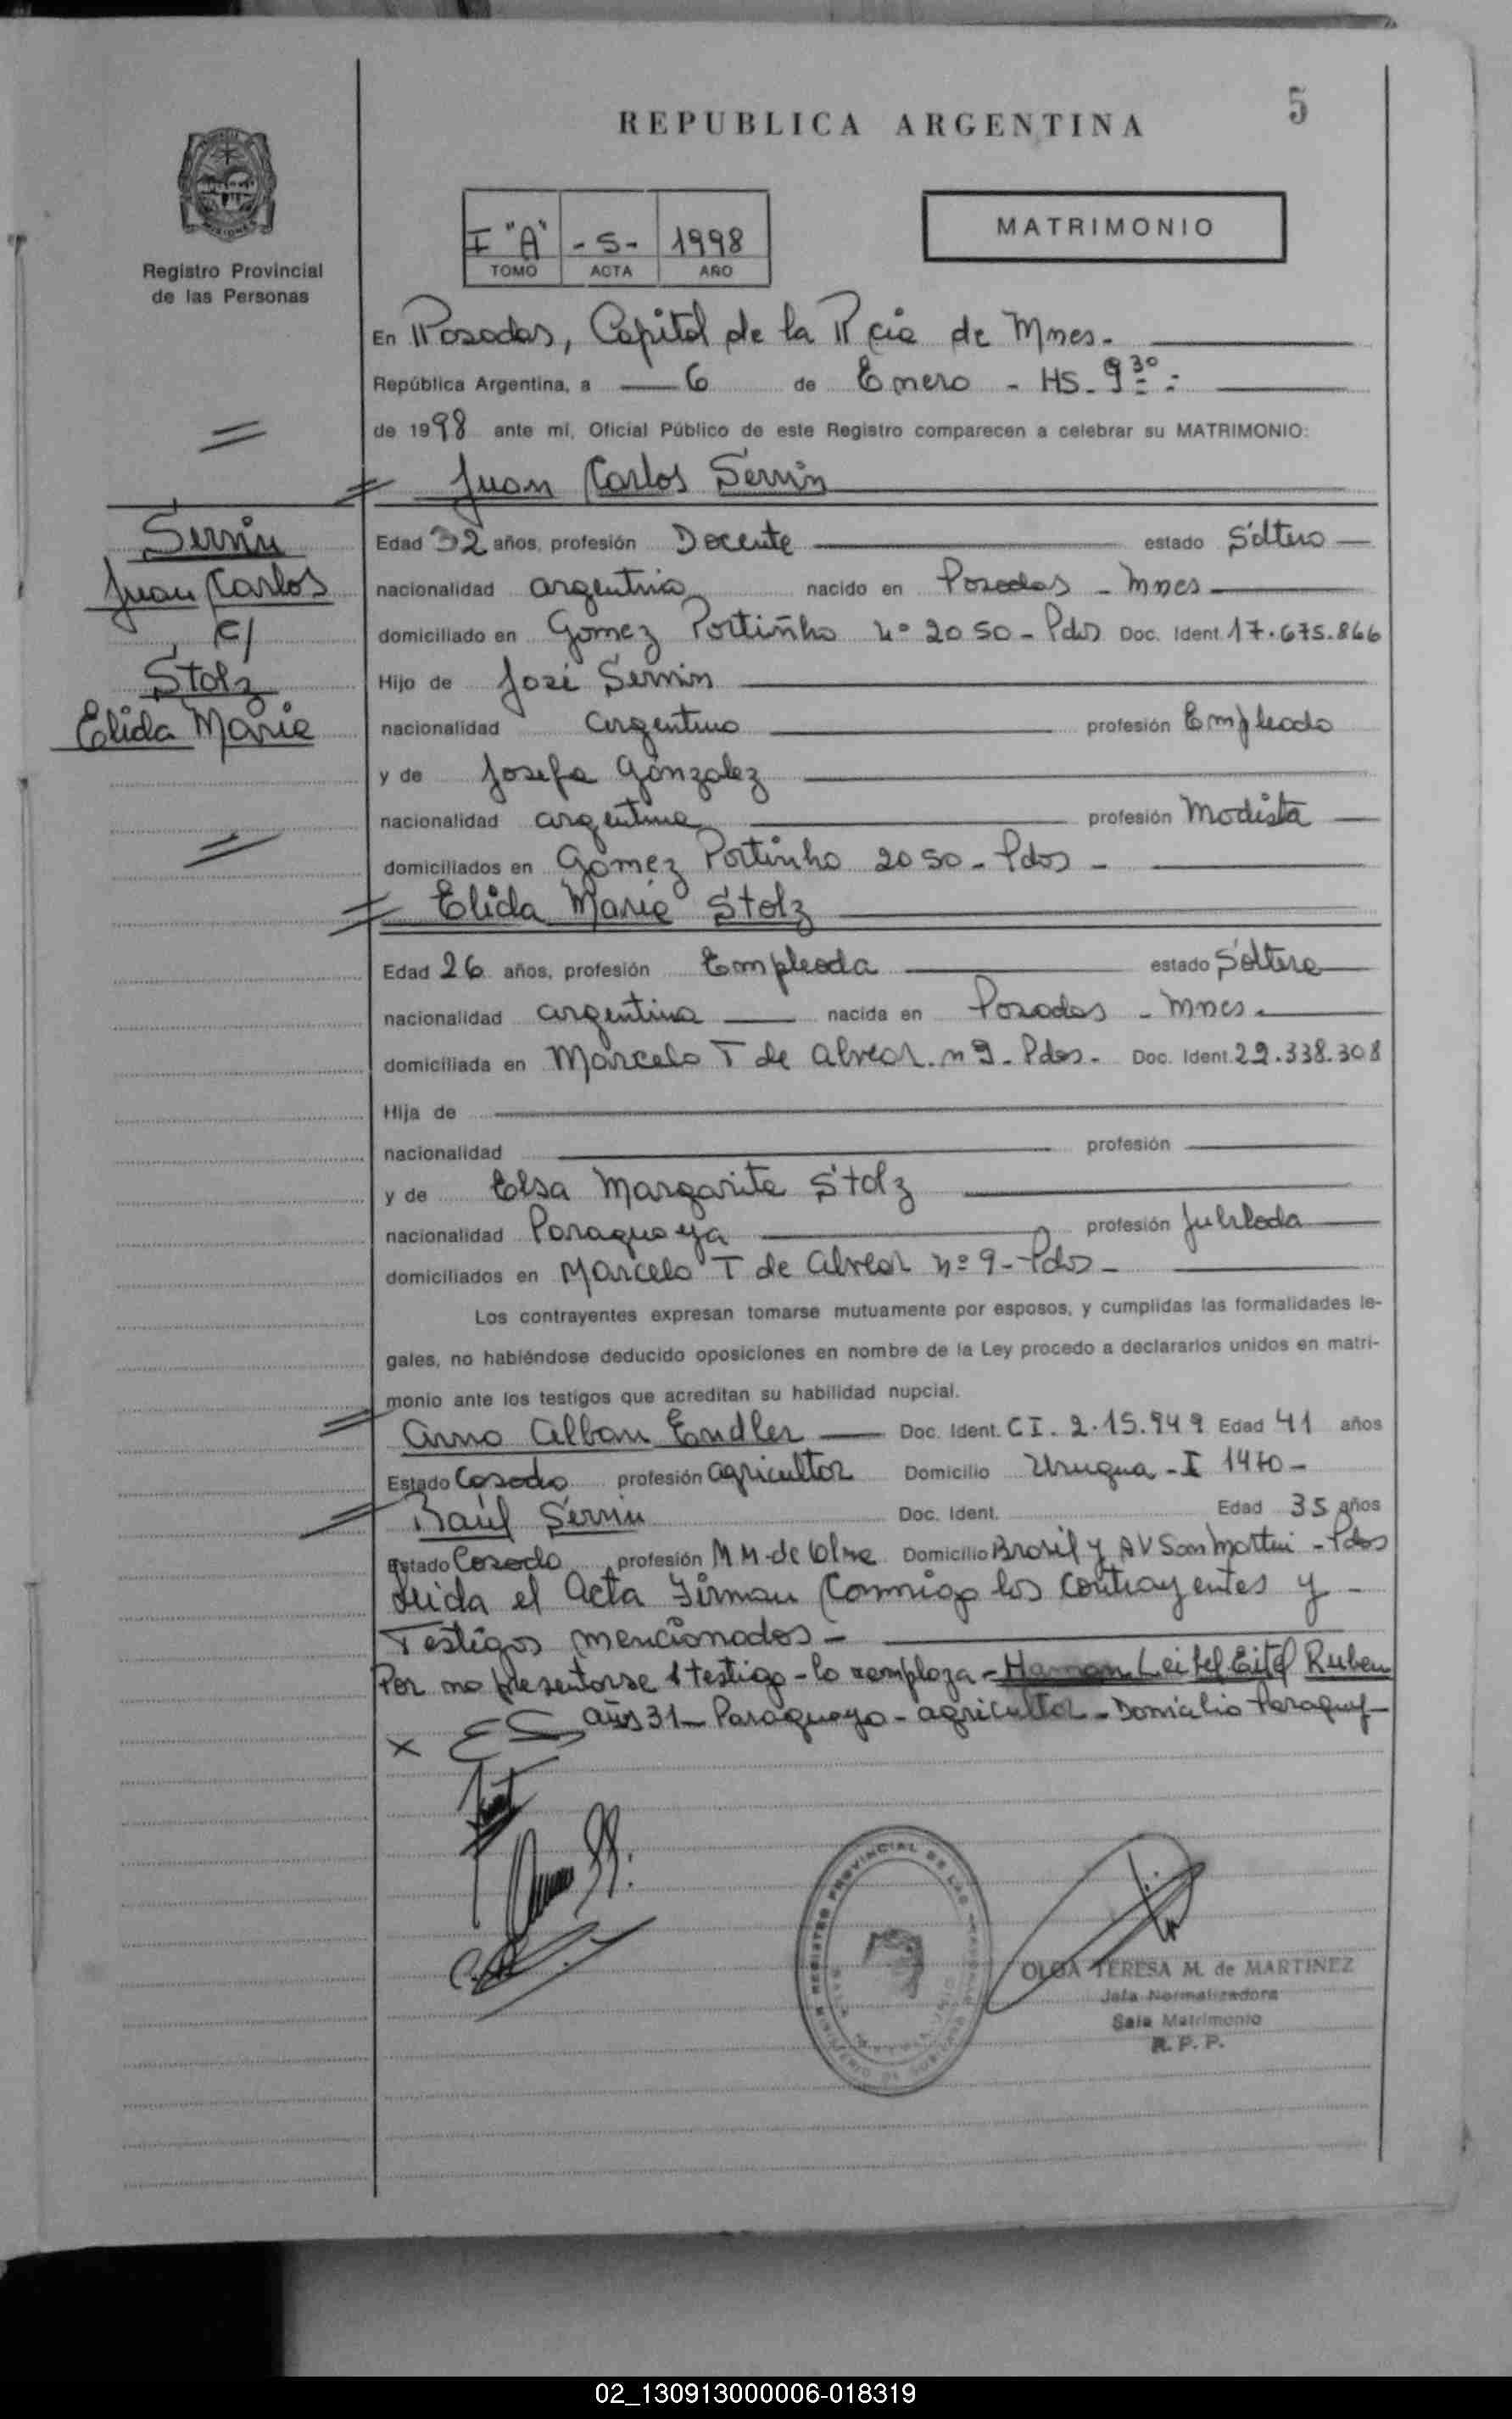 5
REPUBLICA ARGENTINA
I "A" - 5 - 1998
TOMO ACTA AÑO
MATRIMONIO
Registro Provincial
de las Personas
En Posadas, Capital de la Pcia de Mnes.
República Argentina, a 6 de Enero - HS. 9 30
de 1998 ante mí, Oficial Público de este Registro comparecen a celebrar su MATRIMONIO:
Juan Carlos Servin
Servin
Juan Carlos
c/
Stolz
Elida Maria
Edad 32 años, profesión Docente estado Soltero
nacionalidad argentina nacido en Posadas - Mnes
domiciliado en Gomez Portinho nº 2050 - Pdas Doc. Ident. 17.675.866
Hijo de José Servin
nacionalidad argentino profesión Empleado
y de Josefa Gonzalez
nacionalidad argentina profesión Modista
domiciliados en Gomez Portinho 2050 - Pdas -
Elida Maria Stolz
Edad 26 años, profesión Empleada estado Soltera
nacionalidad argentina nacida en Posadas - Mnes.
domiciliada en Marcelo T de Alvear nº 9 - Pdas - Doc. Ident. 22.338.308
Hija de
nacionalidad profesión
y de Elsa Margarita Stolz
nacionalidad Paraguaya profesión Jubilada
domiciliados en Marcelo T de Alvear nº 9 - Pdas -
Los contrayentes expresan tomarse mutuamente por esposos, y cumplidas las formalidades le-
gales, no habiéndose deducido oposiciones en nombre de la Ley procedo a declararlos unidos en matri-
monio ante los testigos que acreditan su habilidad nupcial.
Arno Alban Endler Doc. Ident. CI. 2.15.949 Edad 41 años
Estado Casado profesión agricultor Domicilio Urugua - I 1470 -
Raúl Servin Doc. Ident. Edad 35 años
Estado Casado profesión M M. de Domicilio Brasil y AV San Martin - Pdas
Leida el Acta Firman Conmigo los Contrayentes y -
Testigos mencionados -
Por no presentarse 1 testigo - lo remplaza - Leitel Eitel Ruben
años 31 - Paraguayo - agricultor - Domicilio Paraguay
REGISTRO PROVINCIAL DE LAS PERSONAS
MINISTERIO DE GOBIERNO
OLGA TERESA M. de MARTINEZ
Jefa Normalizadora
Sala Matrimonio
R. P. P.
02_130913000006-018319